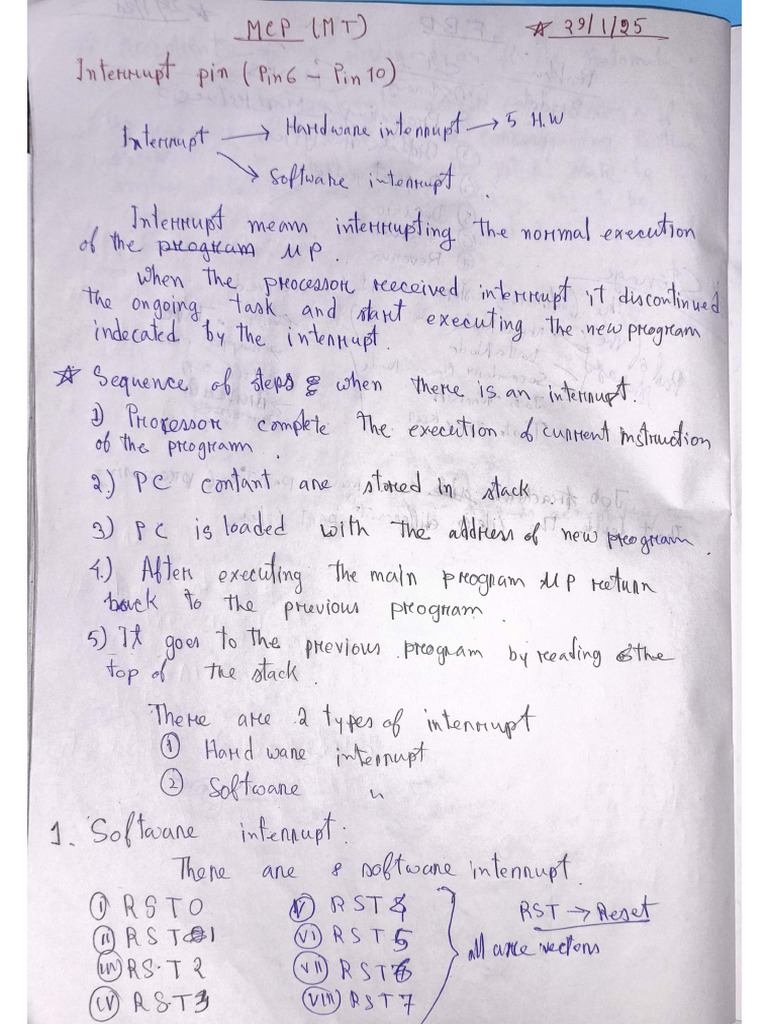 MCP (MT) ☆ 29/1/25
Interrupt pin (Pin6 - Pin 10)
Interrupt → Hardware interrupt → 5 H.W
→ Software interrupt.
Interrupt means interrupting the normal execution
of the program MP.
When the processor received interrupt it discontinued
the ongoing task and start executing the new program
indecated by the interrupt.
☆ Sequence of steps : when there is an interrupt.
1) Processor complete the execution of current instruction
of the program.
2.) PC contant are stored in stack
3) PC is loaded with the address of new program.
4.) After executing the main program MP return
back to the previous program.
5) It goes to the previous program by reading the
top of the stack.
There are 2 types of interrupt
① Hardware interrupt
② Software "
1. Software interrupt:
There are 8 software interrupt.
(I) RST0 (V) RST4 RST → Reset
(II) RST1 (VI) RST5 all are vectors
(III) RST2 (VII) RST6
(IV) RST3 (VIII) RST7